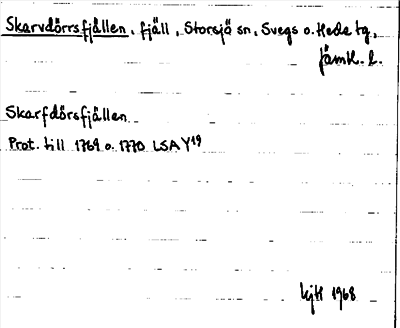 Skarvdörrsfjällen, fjäll, Storsjö sn, Svegs o. Hede tg,
Jämtl. l.
Skarfdörsfjällen
Prot. till 1769 o. 1770 LSA Y19
1968